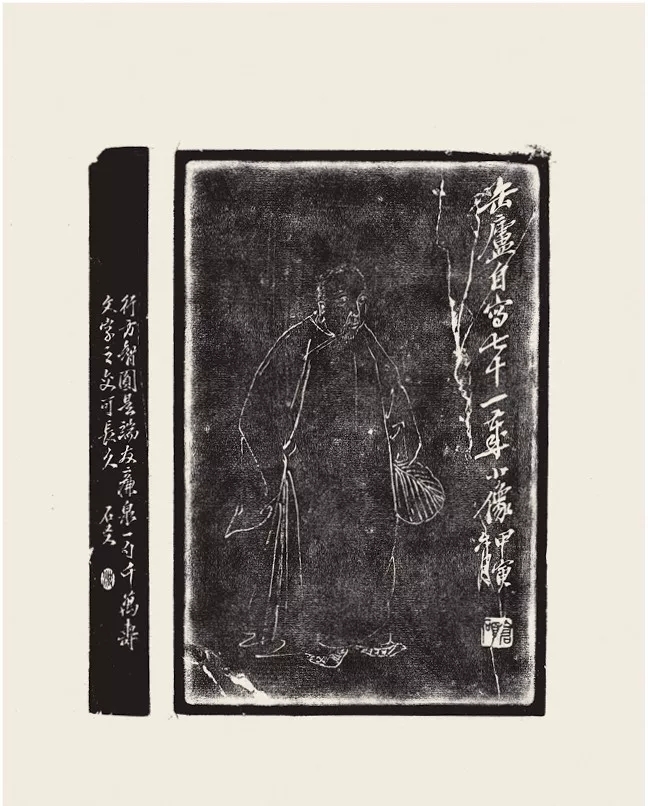 缶廬自寫七十一歲小像
甲寅
行方智圓是端友廉泉一勺千萬壽
文字之交可長久
石友